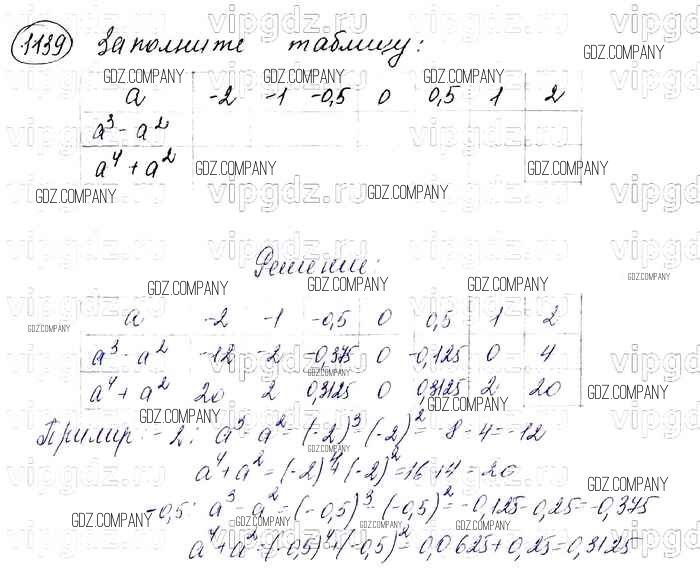 1139 Заполните таблицу:
a -2 -1 -0,5 0 0,5 1 2
a³ - a²
a⁴ + a²
Решение:
a -2 -1 -0,5 0 0,5 1 2
a³ - a² -12 -2 -0,375 0 -0,125 0 4
a⁴ + a² 20 2 0,3125 0 0,3125 2 20
Пример: -2: a³ - a² = (-2)³ - (-2)² = -8 - 4 = -12
a⁴ + a² = (-2)⁴ + (-2)² = 16 + 4 = 20
-0,5: a³ - a² = (-0,5)³ - (-0,5)² = -0,125 - 0,25 = -0,375
a⁴ + a² = (-0,5)⁴ + (-0,5)² = 0,0625 + 0,25 = 0,3125
vipgdz.ru
GDZ.COMPANY